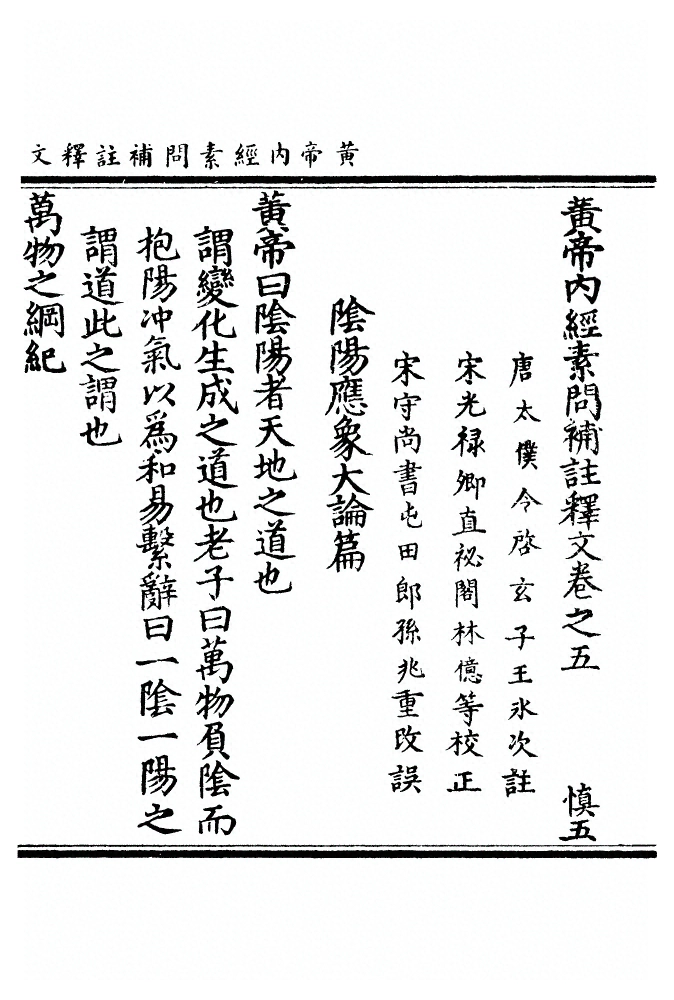 黃帝內經素問補註釋文
黃帝內經素問補註釋文卷之五 慎五
唐太僕令啓玄子王氷次註
宋光祿卿直祕閣林億等校正
宋守尚書屯田郎孫兆重改誤
陰陽應象大論篇
黃帝曰陰陽者天地之道也
謂變化生成之道也老子曰萬物負陰而
抱陽冲氣以爲和易繫辭曰一陰一陽之
謂道此之謂也
萬物之綱紀